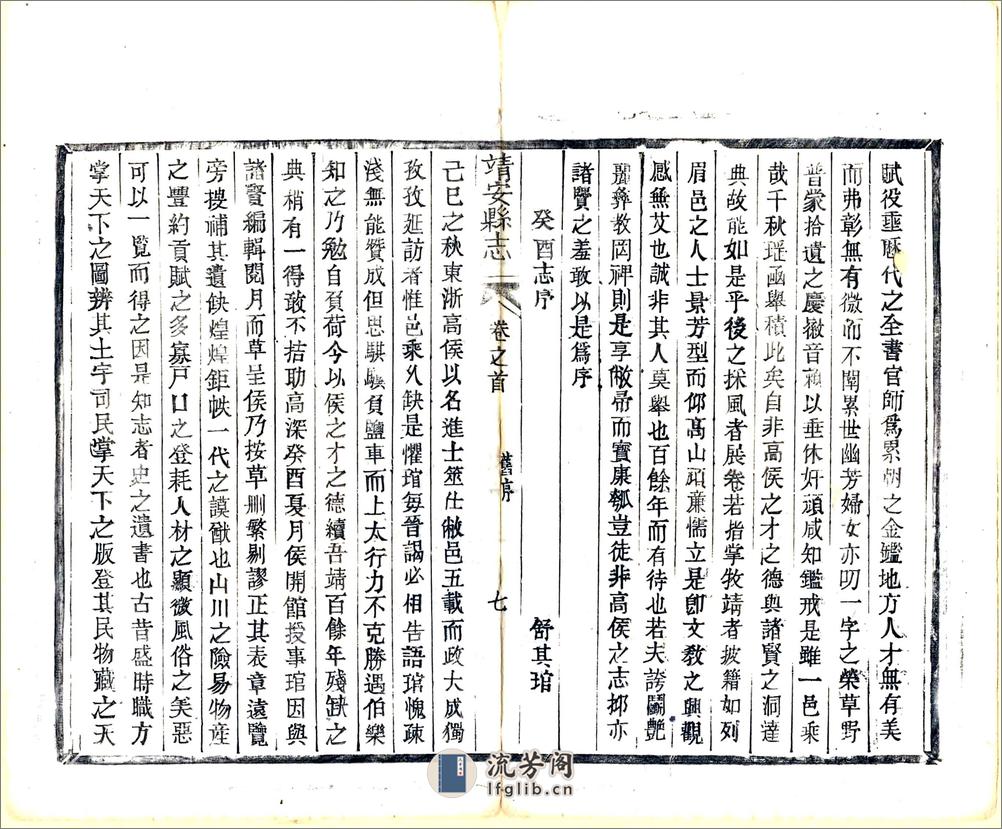 賦役乖歷代之全書官師爲累朝之金鑑地方人才無有美
而弗彰無有微而不闡累世幽芳婦女亦叨一字之榮草野
普蒙拾遺之慶徽音賴以垂休奸頑咸知鑑戒是雖一邑乘
哉千秋瑶函舉積此矣自非高侯之才之德與諸賢之洞達
典故能如是乎後之採風者展卷若指掌牧靖者披籍如列
眉邑之人士景芳型而仰高山頑亷懦立是卽文敎之興觀
感無艾也誠非其人莫舉也百餘年而有待也若夫誇鬭艶
彝教罔裨則是享敝帚而寶康瓠豈徒非高侯之志抑亦
諸賢之羞敢以是爲序
癸酉志序 舒其琯
靖安縣志 卷之首 舊序 七
己巳之秋東浙高侯以名進士筮仕敝邑五載而政大成獨
孜孜延訪者惟邑乘久缺是懼琯每晉謁必相告語琯愧疎
淺無能贊成但思騏驥負鹽車而上太行力不克勝遇伯樂
知之乃勉自負荷今以侯之才之德續吾靖百餘年殘缺之
典稍有一得敢不拮助高深癸酉夏月侯開館授事琯因與
諸賢編輯閱月而草呈侯乃按草刪繁剔謬正其表章遠覽
旁搜補其遺缺煌煌鉅帙一代之謨猷也山川之險易物産
之豐約貢賦之多寡戸口之登耗人材之顯微風俗之美惡
可以一覽而得之因是知志者史之遺書也古昔盛時職方
掌天下之圖辨其土宇司民掌天下之版登其民物藏之天
流芳阁
lfglib.cn